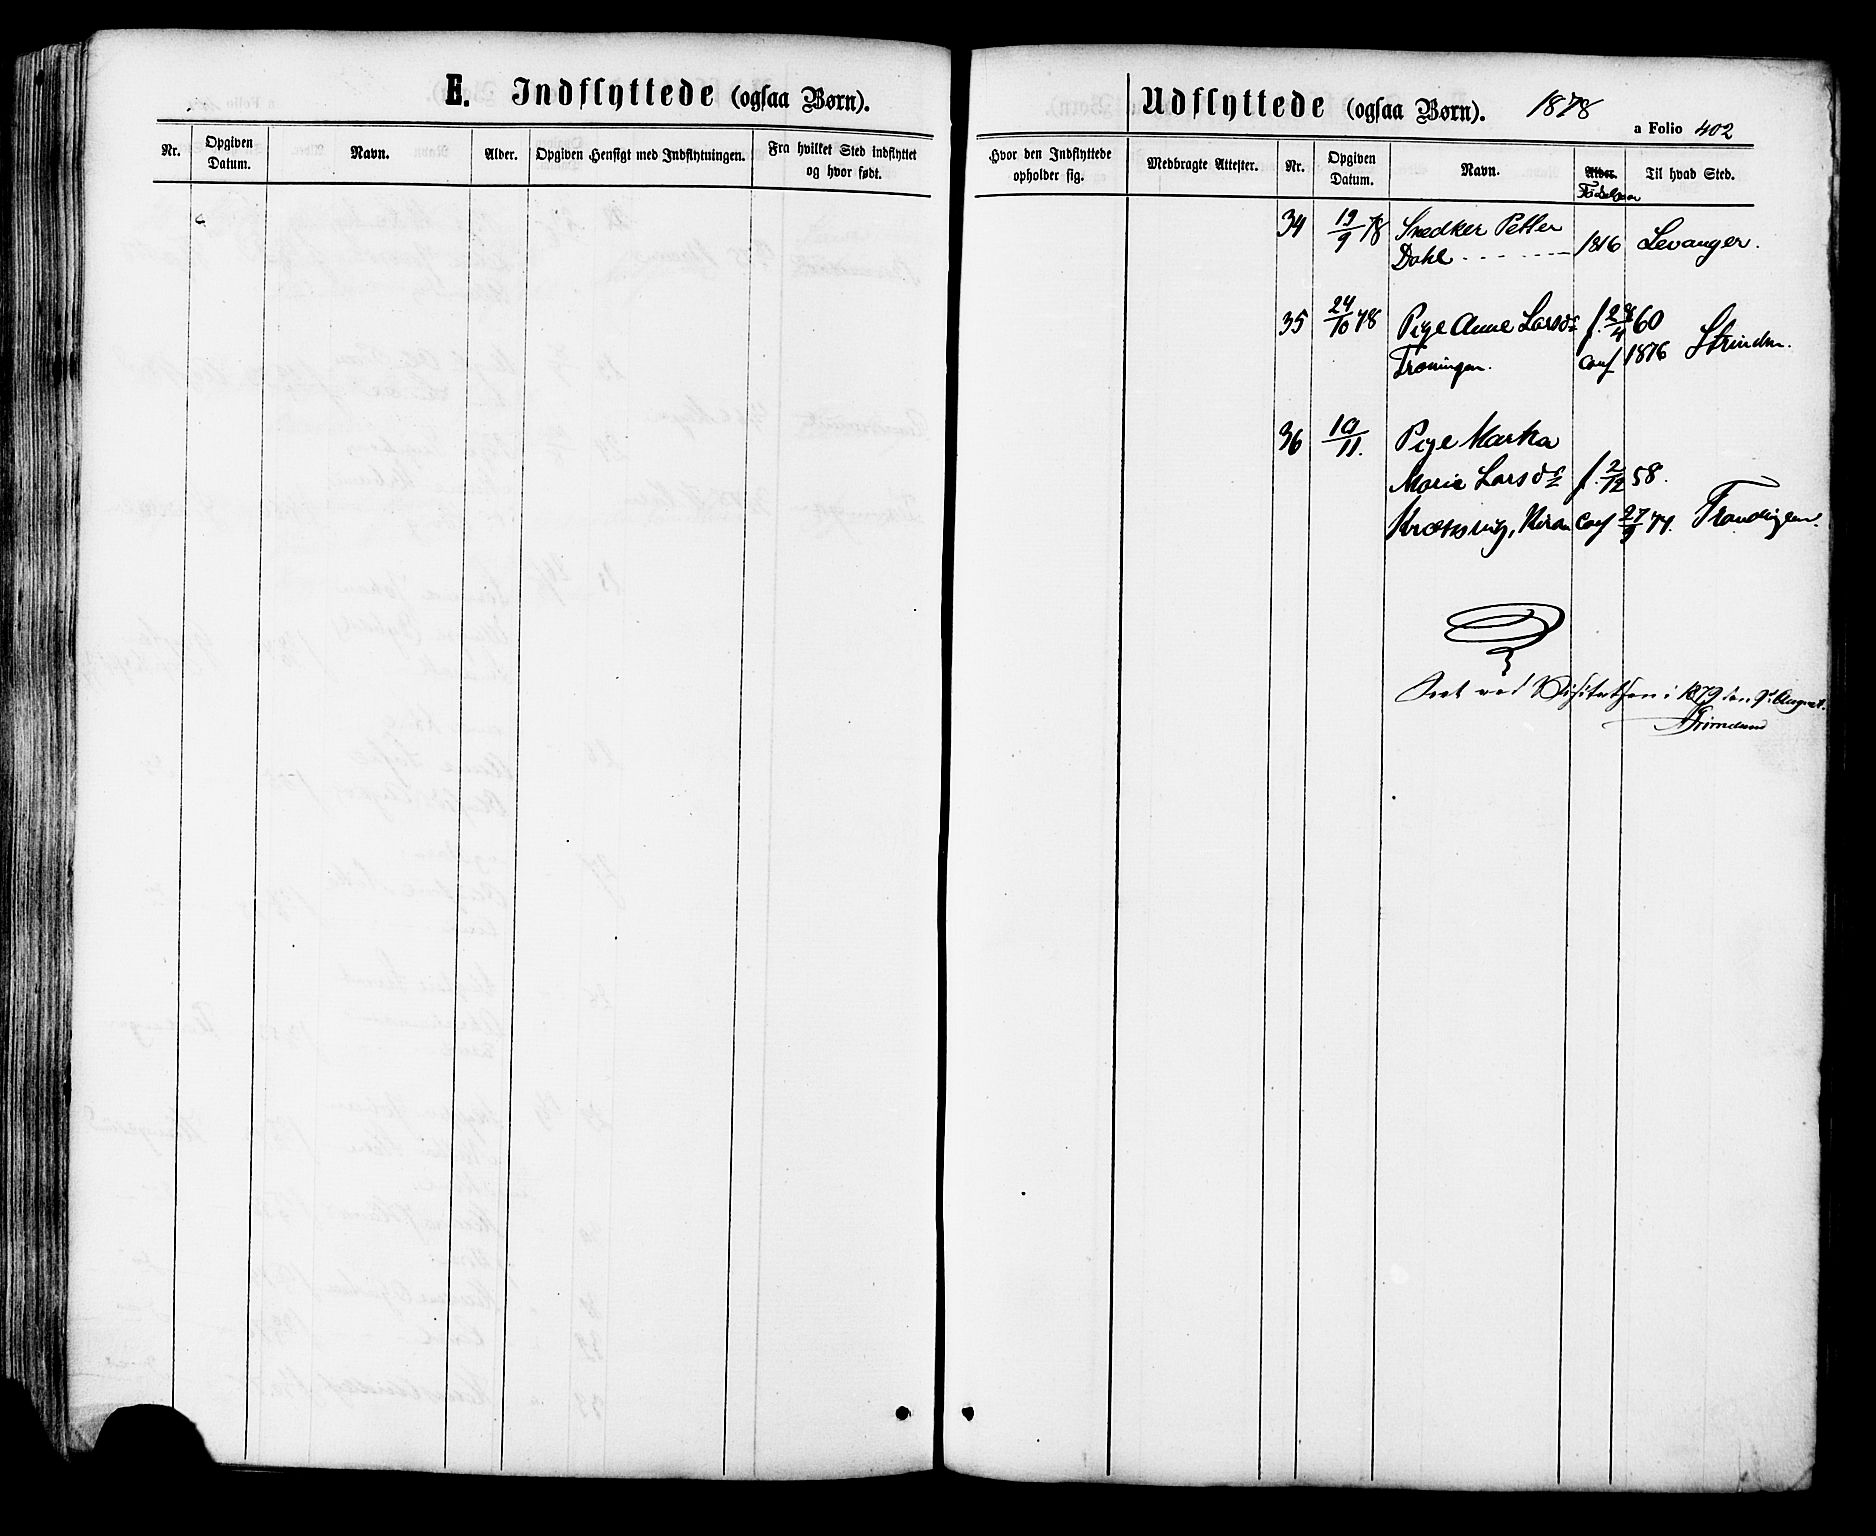 E. Indflyttede (ogsaa Børn).
Nr. Opgiven Datum. Navn. Alder. Opgiven Hensigt med Indflytningen. Fra hvilket Sted indflyttet og hvor født.
Udflyttede (ogsaa Børn). 1878
a Folio 402
Hvor den Indflyttede opholder sig. Medbragte Attester. Nr. Opgiven Datum. Navn. Alder. Til hvad Sted.
34 19/9 78 Snedker Petter
Dahl - - - - - - 1816 Levanger.
35 24/10 78 Pige Anne Larsd. f. 28/4 60
conf 1876 Strinden.
36 10/11. Pige Marta
Marie Larsd. f. 2/12 58.
conf 27/9 74.
Seet ved Visitatsen i 1879 den 9d August.
Grimelund